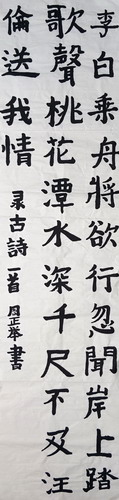 李白乘舟將欲行忽聞岸上踏
歌聲桃花潭水深千尺不及汪
倫送我情
录古詩一首 周正举書